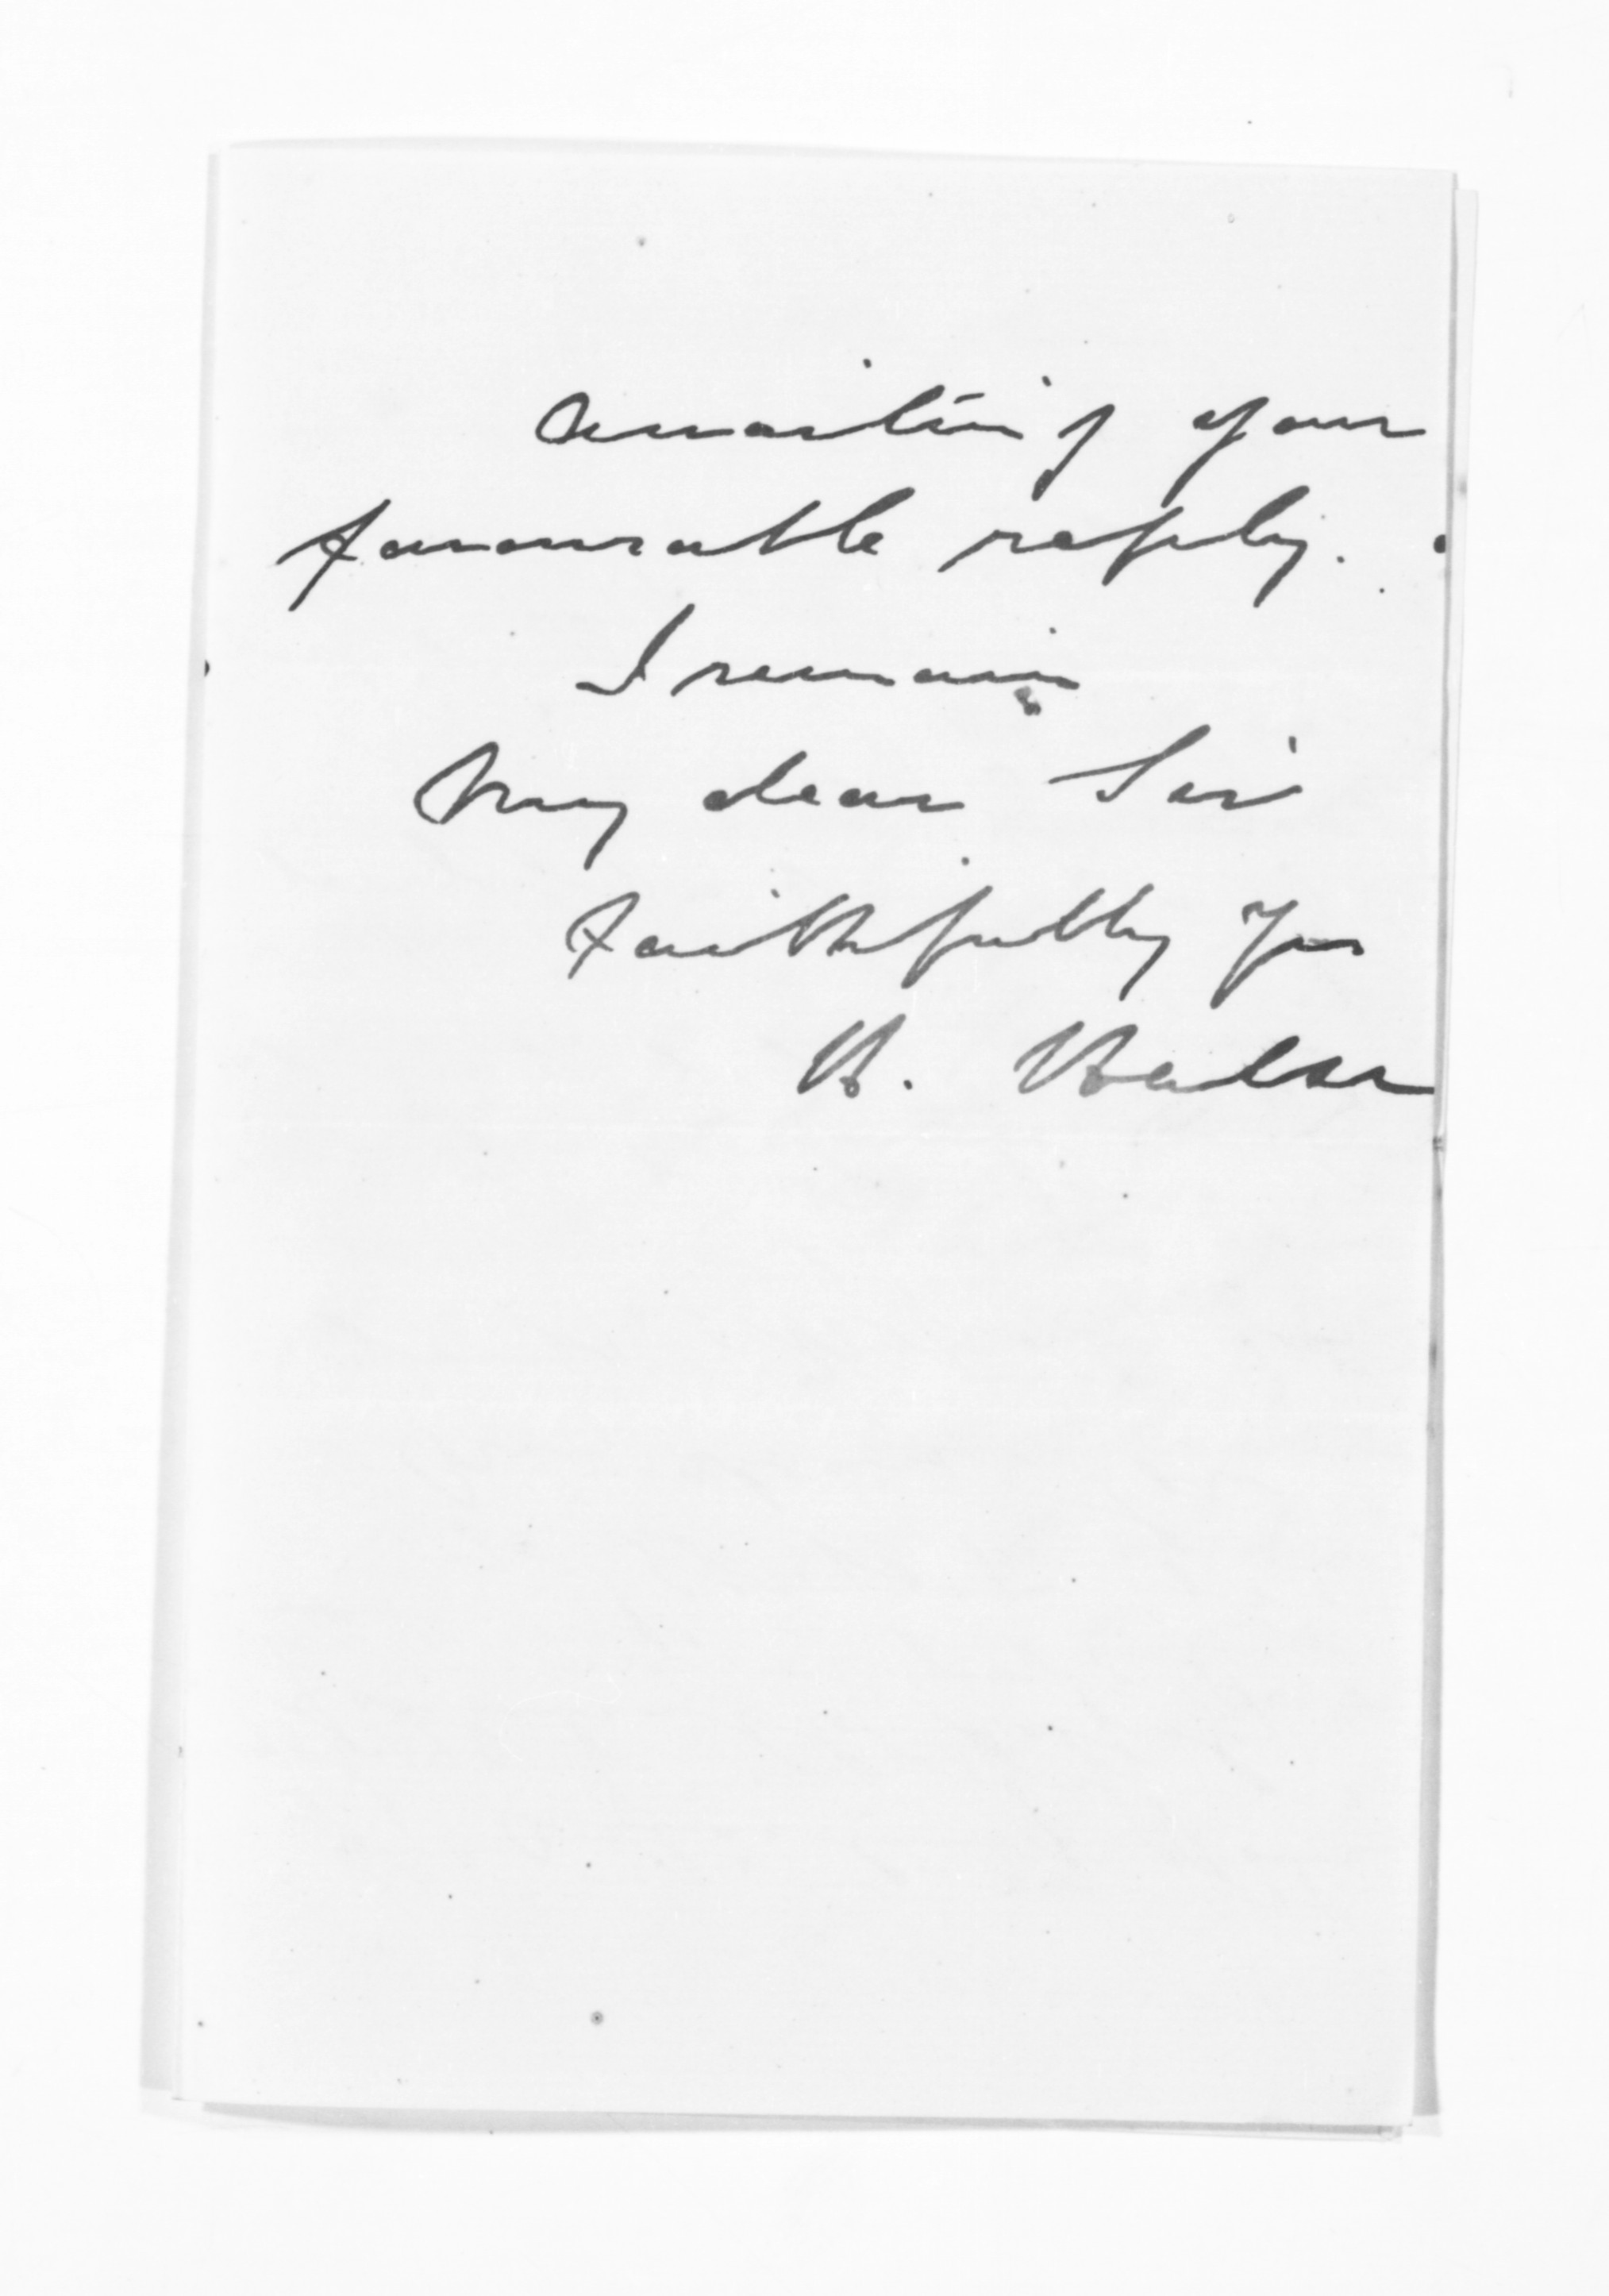 Awaiting your
favourable reply.
I remain
My dear Sir
Faithfully Yrs
H.